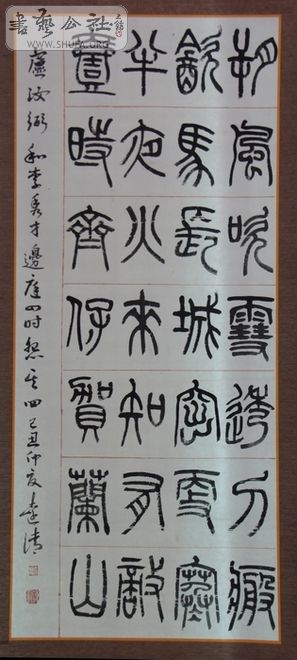 書藝公社
WWW.SHUFA.ORG
朔風吹雪透刀瘢
飲馬長城窟更寒
半夜火來知有敵
壹時齊保賀蘭山
盧汝弼和李秀才邊庭四时怨其四己丑仲夏